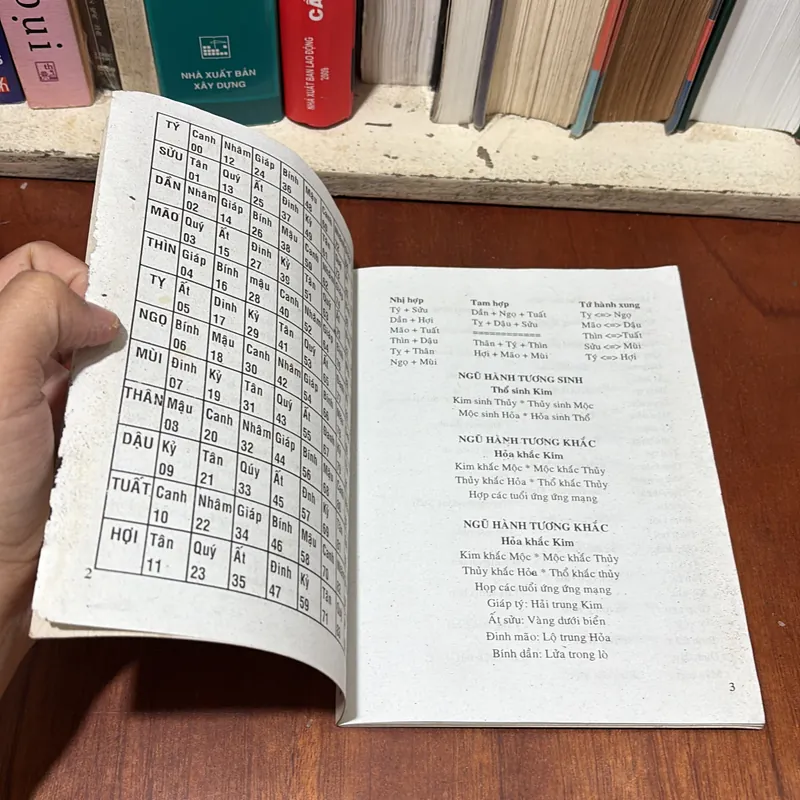 ỌỤI
NHÀ XUẤT BẢN
XÂY DỰNG
NHÀ XUẤT BẢN LAO ĐỘNG
2005
TÝ Canh 00 Nhâm 12 Giáp 24 Bính 36 Mậu 48
SỬU Tân 01 Quý 13 Ất 25 Đinh 37 Kỷ 49
DẦN Nhâm 02 Giáp 14 Bính 26 Mậu 38
MÃO Quý 03 Ất 15 Đinh 27 Kỷ 39
THÌN Giáp 04 Bính 16 mậu 28 Canh 40
TỴ Ất 05 Dinh 17 Kỷ 29 Tân 41
NGỌ Bính 06 Mậu 18 Canh 30 Nhâm 42
MÙI Đinh 07 Kỷ 19 Tân 31 Quý 43
THÂN Mậu 08 Canh 20 Nhâm 32 Giáp 44 Bính 56
DẬU Kỷ 09 Tân 21 Qúy 33 Ất 45 Đinh 57
TUẤT Canh 10 Nhâm 22 Giáp 34 Bính 46 Mậu 58 Canh 70
HỢI Tân 11 Quý 23 Ất 35 Đinh 47 Kỷ 59 Tân 71
2
Nhị hợp Tam hợp Tứ hành xung
Tý + Sửu Dần + Ngọ + Tuất Tỵ <=> Ngọ
Dần + Hợi Tỵ + Dậu + Sửu Mão <=> Dậu
Mão + Tuất ============ Thìn <=>Tuất
Thìn + Dậu Thân + Tý + Thìn Sửu <=> Mùi
Tỵ + Thân Hợi + Mão + Mùi Tý <=> Hợi
Ngọ + Mùi
NGŨ HÀNH TƯƠNG SINH
Thổ sinh Kim
Kim sinh Thủy * Thủy sinh Mộc
Mộc sinh Hỏa * Hỏa sinh Thổ
NGŨ HÀNH TƯƠNG KHẮC
Hỏa khắc Kim
Kim khắc Mộc * Mộc khắc Thủy
Thủy khắc Hỏa * Thổ khắc Thủy
Hợp các tuổi ứng ứng mạng
NGŨ HÀNH TƯƠNG KHẮC
Hỏa khắc Kim
Kim khắc Mộc * Mộc khắc Thủy
Thủy khắc Hỏa * Thổ khắc thủy
Họp các tuổi ứng ứng mạng
Giáp tý: Hải trung Kim
Ất sửu: Vàng dưới biển
Đinh mão: Lộ trung Hỏa
Bính dần: Lửa trong lò
3